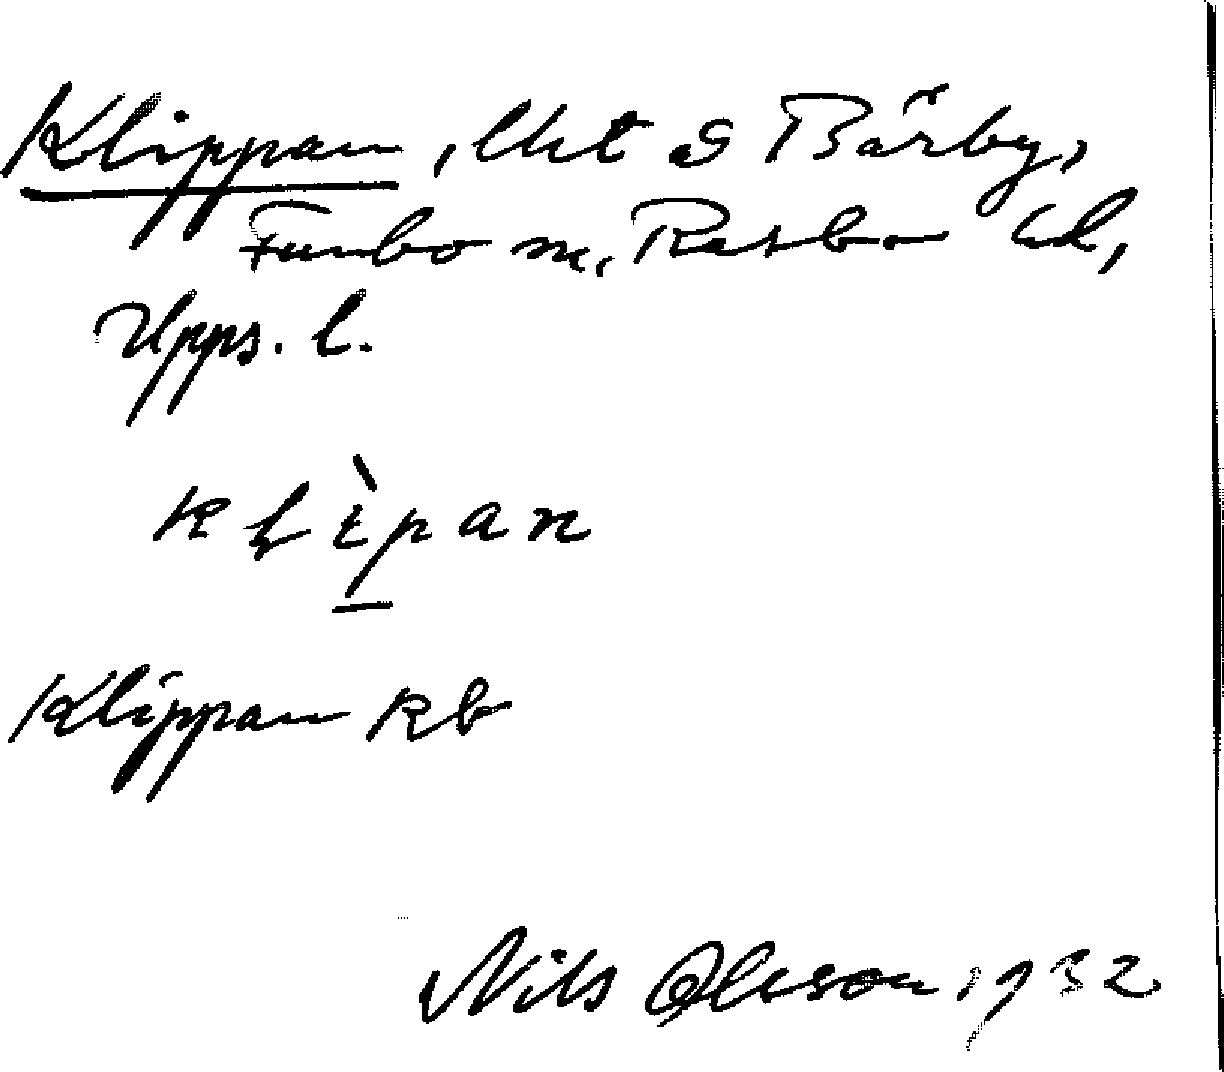 Klippan, lht å Bärby,
Funbo sn, Rasbo hd,
Upps. l.
Klippan kb
Nils Olsson 1932